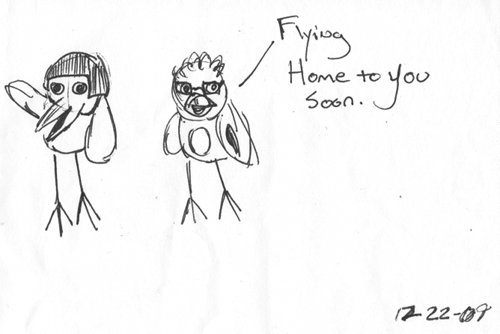 Flying
Home to you
Soon.
12-22-09